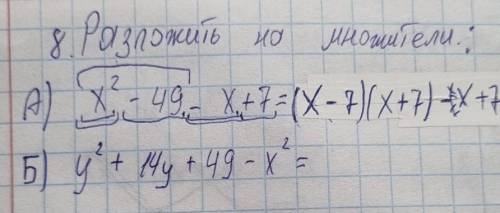 8. Разложить на множители.:
А) x² - 49 - x + 7 = (x - 7)(x + 7) - x + 7
Б) y² + 14y + 49 - x² =